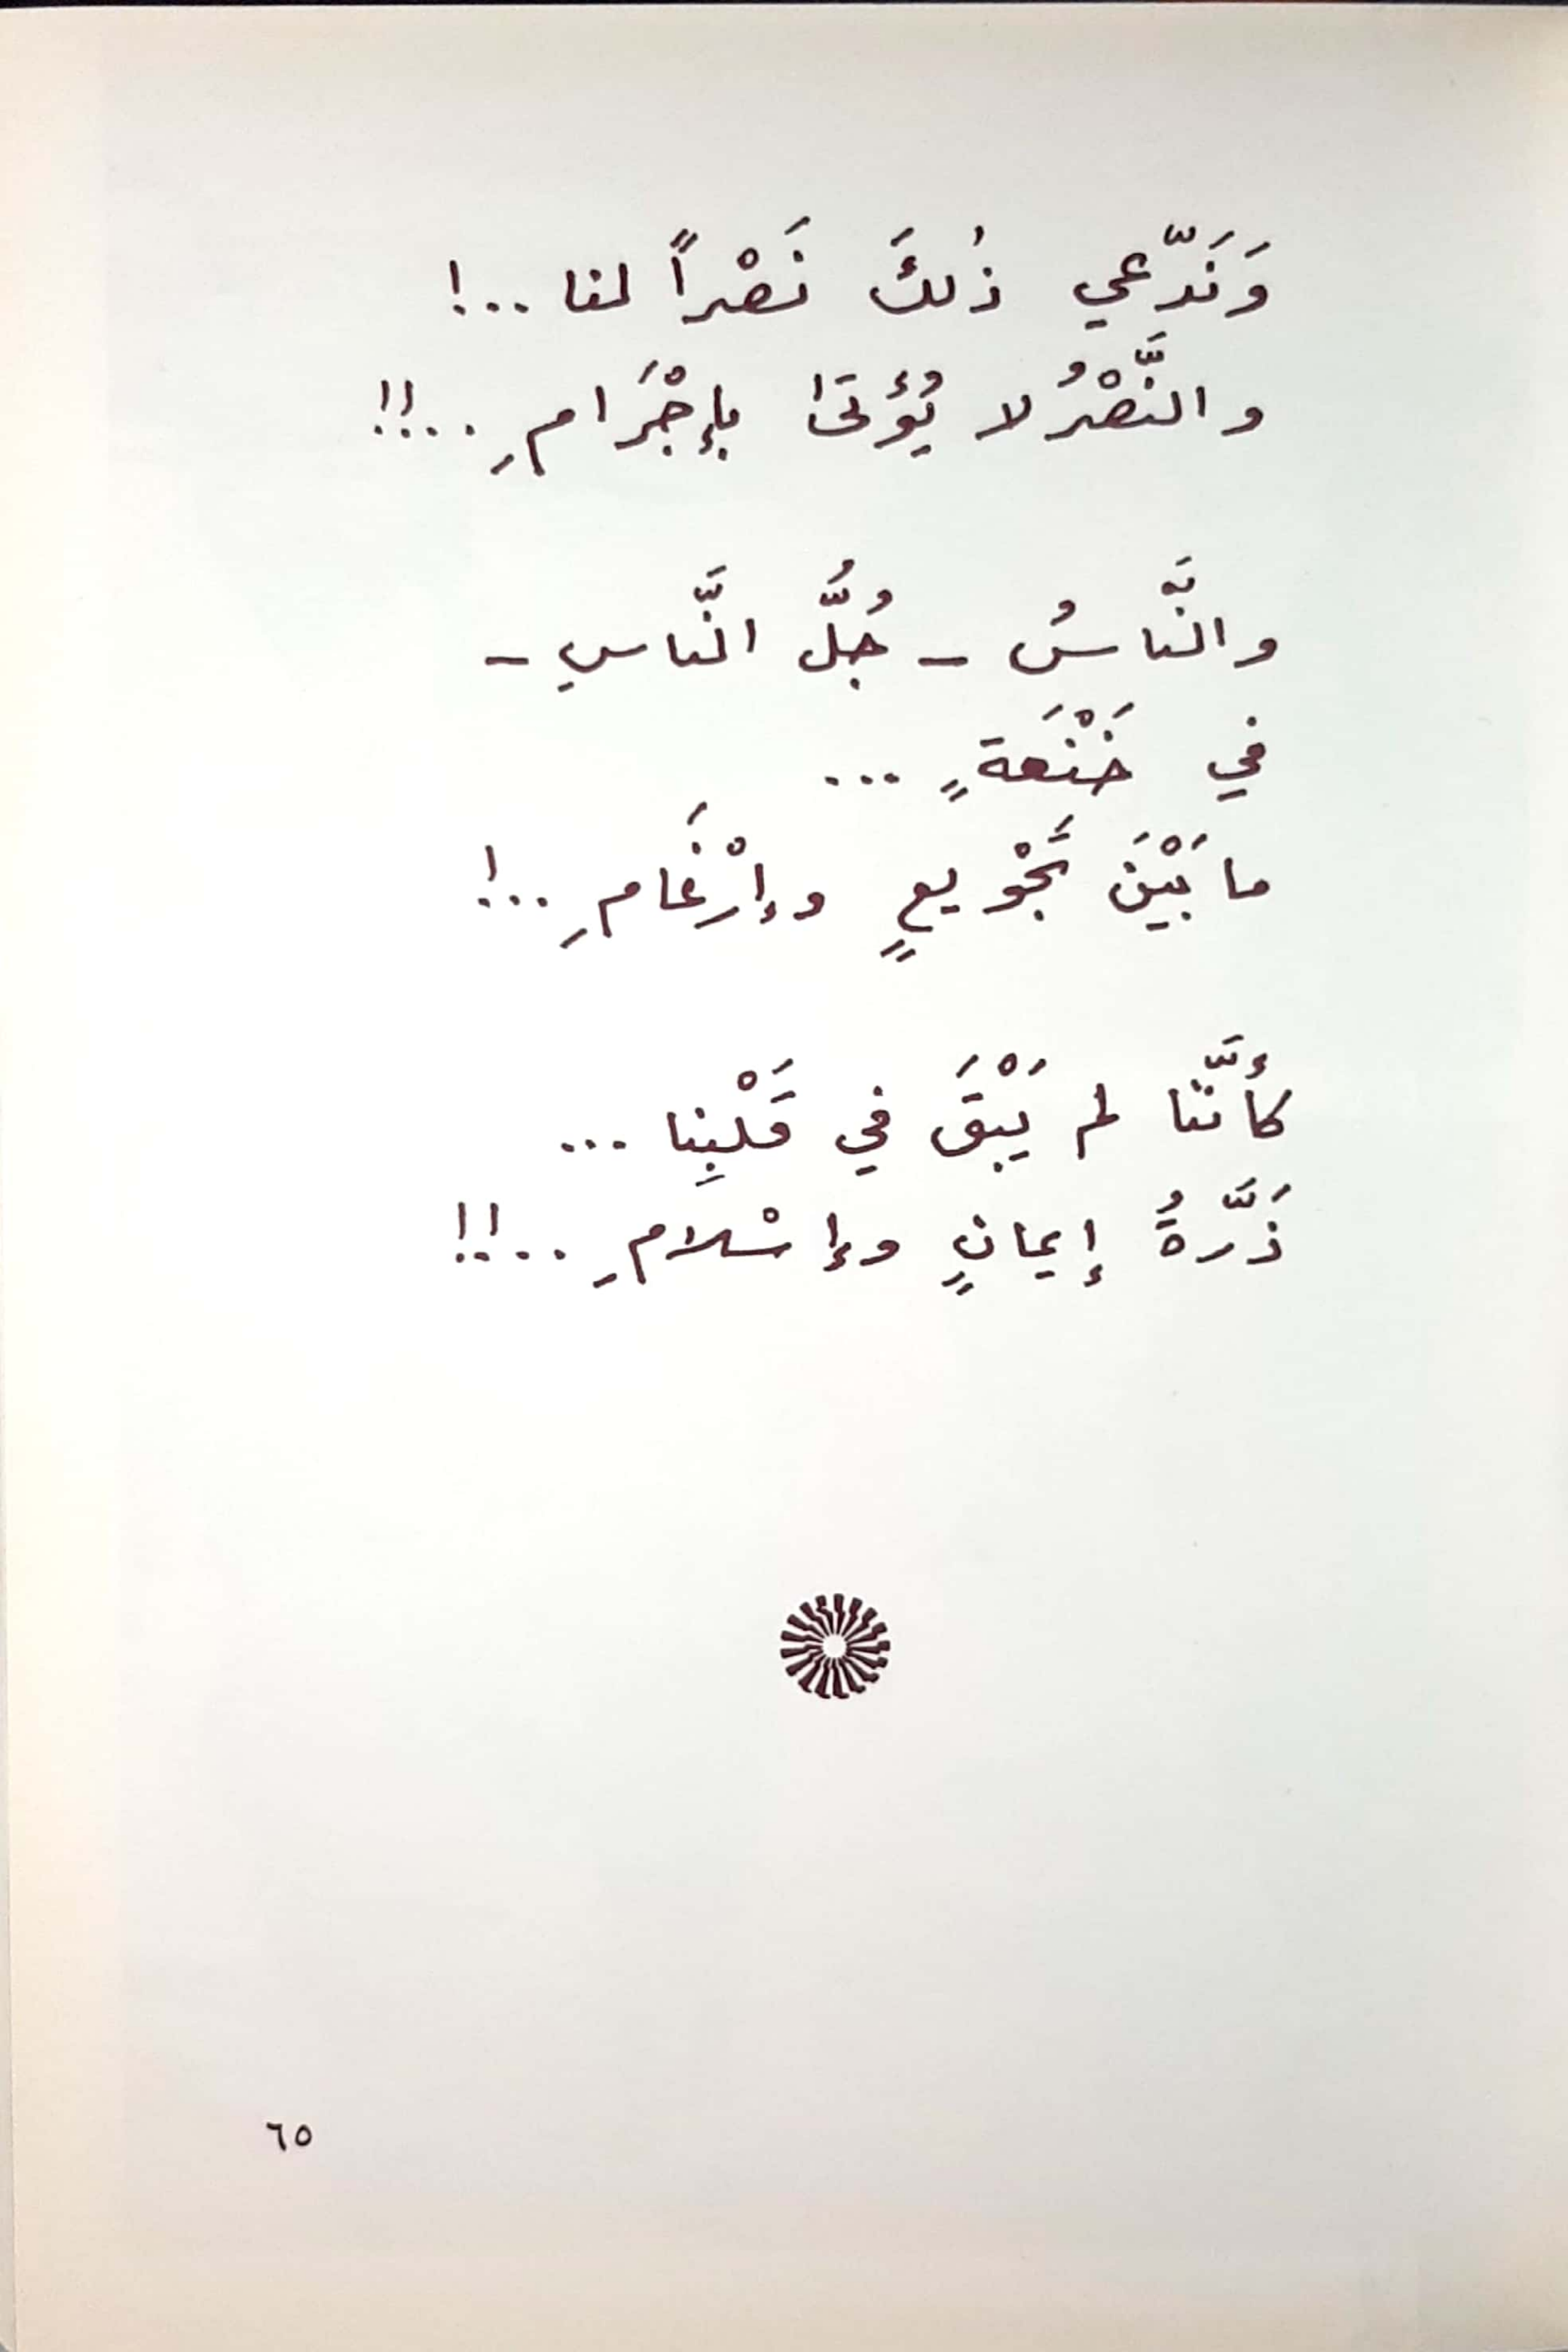 وَنَدّعي ذٰلكَ نَصْراً لنا ..!
والنَّصْرُ لا يُؤتىٰ بإجْرَامِ ..!!
والنَّاسُ – جُلُّ النَّاسِ –
في خَنْعَةٍ ...
ما بَيْنَ تَجْويعٍ وإرْغَامِ ..!
كأنَّنا لم يَبْقَ في قَلْبِنا ...
ذَرَّةُ إيمانٍ وإسْلامِ ..!!
٦٥